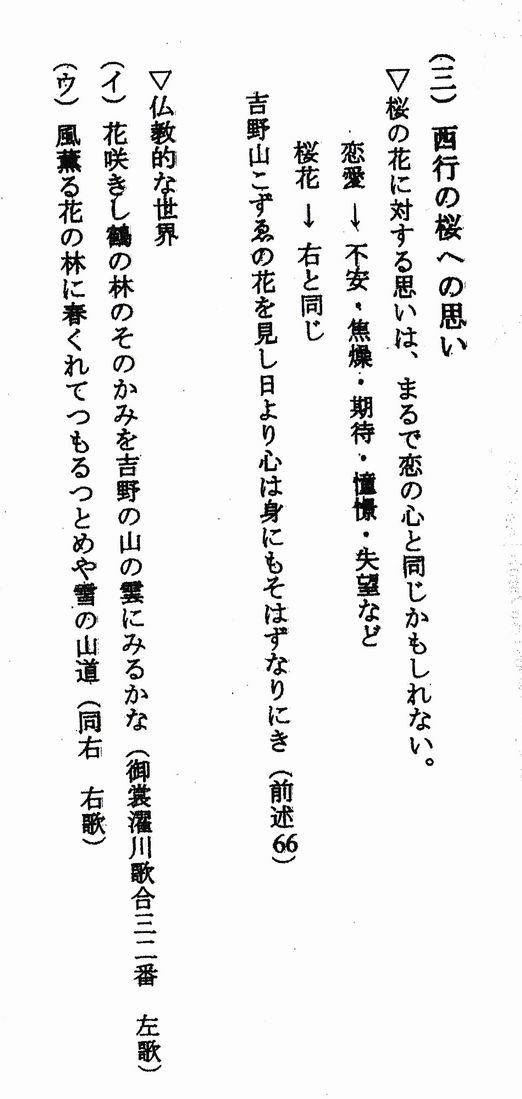 （三）西行の桜への思い
▽桜の花に対する思いは、まるで恋の心と同じかもしれない。
恋愛 → 不安・焦燥・期待・憧憬・失望など
桜花 → 右と同じ
吉野山こずゑの花を見し日より心は身にもそはずなりにき（前述66）
▽仏教的な世界
（イ）花咲きし鶴の林のそのかみを吉野の山の雲にみるかな（御裳濯川歌合三二番　左歌）
（ウ）風薫る花の林に春くれてつもるつとめや雪の山道（同右　右歌）